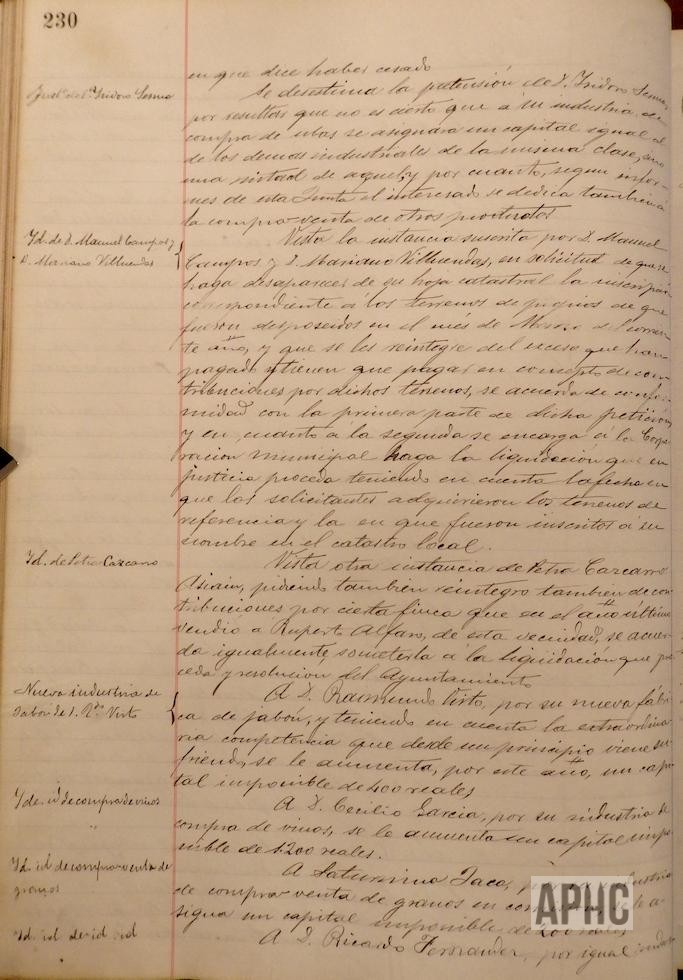 230
en que dice haber cesado
Inst.ª de D. Isidoro
Se desestima la pretensión de D. Isidoro
por resultar que no es cierto que a su industria de
compra de uvas se asignara un capital igual al
de los demas industriales de la misma clase, sino
una mitad de aquel, y por cuanto, segun infor-
mes de esta Junta el interesado se dedica tambien á
la compra-venta de otros productos
Id. de D. Manuel Campos y
D. Mariano Villuendas
Vista la instancia suscrita por D. Manuel
Campos y D. Mariano Villuendas, en solicitud de que se
haga desaparecer de su hoja catastral la inscripción
correspondiente á los terrenos de propios de que
fueron desposeidos en el més de Marzo del corrien-
te año, y que se les reintegre del exceso que han
pagado y tienen que pagar en concepto de con-
tribuciones por dichos terrenos, se acuerda de confor-
midad con la primera parte de dicha petición,
y en cuanto á la segunda se encarga á la Corpo-
racion municipal haga la liquidación que en
justicia proceda teniendo en cuenta la fecha en
que los solicitantes adquirieron los terrenos de
referencia y la en que fueron inscritos á su
nombre en el catastro local.
Id. de Petra Carcarro
Vista otra instancia de Petra Carcarro
Asiain, pidiendo tambien reintegro tambien de con
tribuciones por cierta finca que en el año último
vendió á Ruperto Alfaro, de esta vecindad, se acuer-
da igualmente someterla á la liquidación que pro
ceda y resolucion del Ayuntamiento
Nueva industria de
Jabón de D. R.do Virto
A D. Raimundo Virto, por su nueva fábri
ca de jabón, y teniendo en cuenta la extraordina
ria competencia que desde un principio viene su-
friendo, se le aumenta, por este año, un capi
tal imponible de 400 reales
Yde. id de compra de vinos
A D. Cecilio Garcia, por su industria de
compra de vinos, se le aumenta un capital impo
nible de 1.200 reales.
Id. id de compra-venta de
granos
A Saturnino Jaca, industria
de compra-venta de granos en se le a-
signa un capital imponible de 200 reales
Id. id. de id. id
A D. Ricardo Fernandez, por igual indus
APHC